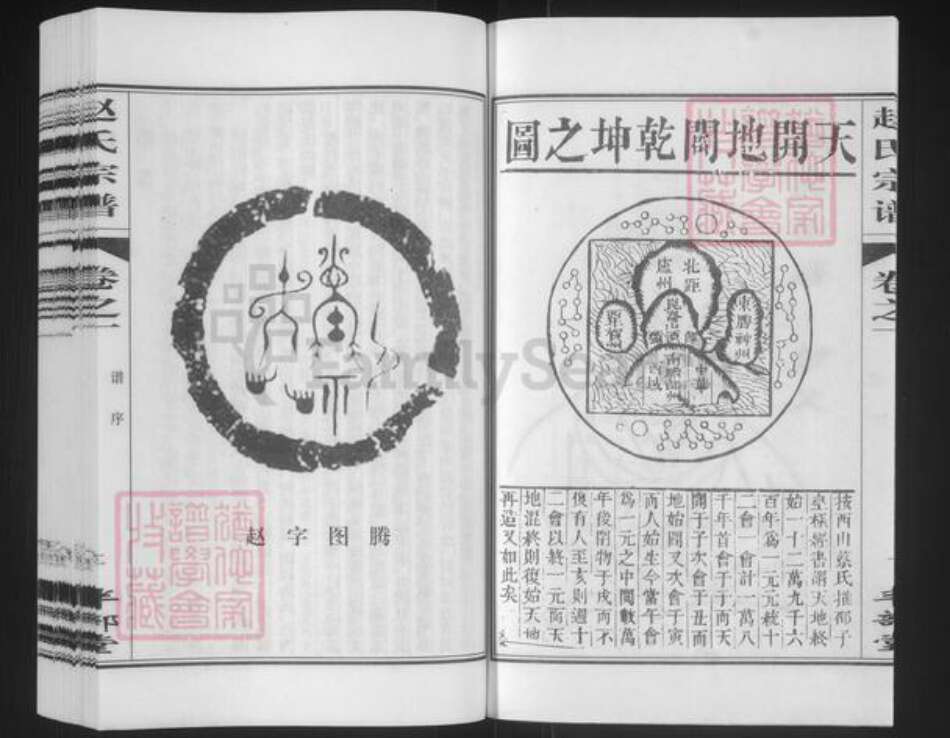 天開地闢乾坤之圖
赵氏宗谱
卷之一
北距
盧州
東勝神州
按西山蔡氏推邵子
皇極經書謂天地終
始一十二萬九千六
百年為一元元統十
二會一會計一萬八
千年首會于子而天
開于子次會于丑而
地始闢又次會于寅
而人始生今當午會
為一元之中間數萬
年後閉物于戌而不
復有人至亥則週十
二會以終一元而天
地混終則復始天地
再造又如此矣
赵字图腾
赵氏宗谱
卷之一
谱序
FamilySe